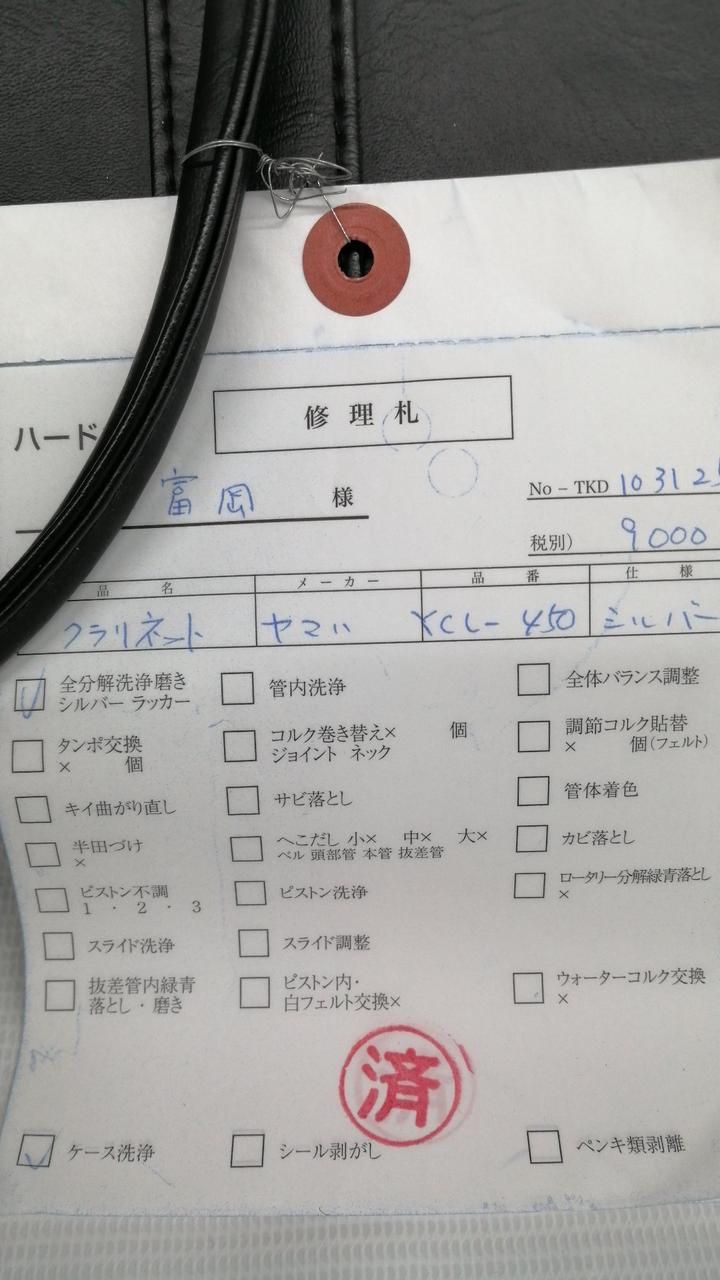 修理札
ハード
富岡 様
No－TKD 103125
税別） 9000
品名 メーカー 品番 仕様
クラリネット ヤマハ YCL-450 シルバー
全分解洗浄磨き
シルバー ラッカー
管内洗浄
全体バランス調整
タンポ交換
× 個
コルク巻き替え× 個
ジョイント ネック
調節コルク貼替
× 個（フェルト）
キイ曲がり直し
サビ落とし
管体着色
半田づけ
×
へこだし 小× 中× 大×
ベル 頭部管 本管 抜差管
カビ落とし
ピストン不調
1 ・ 2 ・ 3
ピストン洗浄
ロータリー分解緑青落とし
×
スライド洗浄
スライド調整
抜差管内緑青
落とし・磨き
ピストン内・
白フェルト交換×
ウォーターコルク交換
×
済
ケース洗浄
シール剥がし
ペンキ類剥離